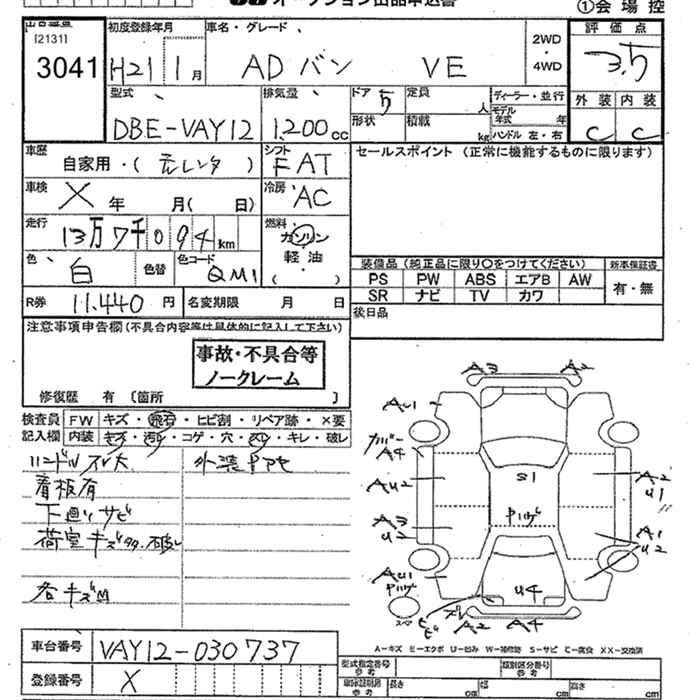 ①会場控
出品番号
[2131]
3041
初度登録年月
H21 1月
車名・グレード
ADバン VE
2WD
・
4WD
評価点
3.5
型式
DBE-VAY12
排気量
1,200cc
ドア 5
定員 人
ディーラー・並行
モデル年式 年
形状
積載 kg
ハンドル 左・右
外装 内装
C C
車歴
自家用・(元レンタ)
シフト
FAT
セールスポイント (正常に機能するものに限ります)
車検
X 年 月( 日)
冷房
AC
走行
13万7千094km
燃料
ガソリン
軽油
( )
色
白
色替
色コード
QM1
装備品 (純正品に限り○をつけてください)
新車保証書
PS PW ABS エアB AW
SR ナビ TV カワ
有・無
R券 11,440円
名変期限 月 日
後日品
注意事項申告欄(不具合内容等は具体的に記入して下さい)
事故・不具合等
ノークレーム
修復歴 有 [箇所 ]
検査員
記入欄
FW キズ・飛石・ヒビ割・リペア跡・×要
内装 キズ・汚れ・コゲ・穴・スリ・キレ・破レ
ハンドルスレ大
外装
看板有
下廻りサビ
荷室キズ
各キズ凹
A3
A2
AU1
カバー
A4
S1
AU2
A2
U1
A3
U2
A1
U2
AU1
U4
A2
A4
スペア
A-キズ E-エクボ U-凹み W-補修跡 S-サビ C-腐食 XX-交換済
車台番号 VAY12-030737
登録番号 X
型式指定番号
参考
類別区分番号
参考
長さ cm
幅 cm
高さ cm